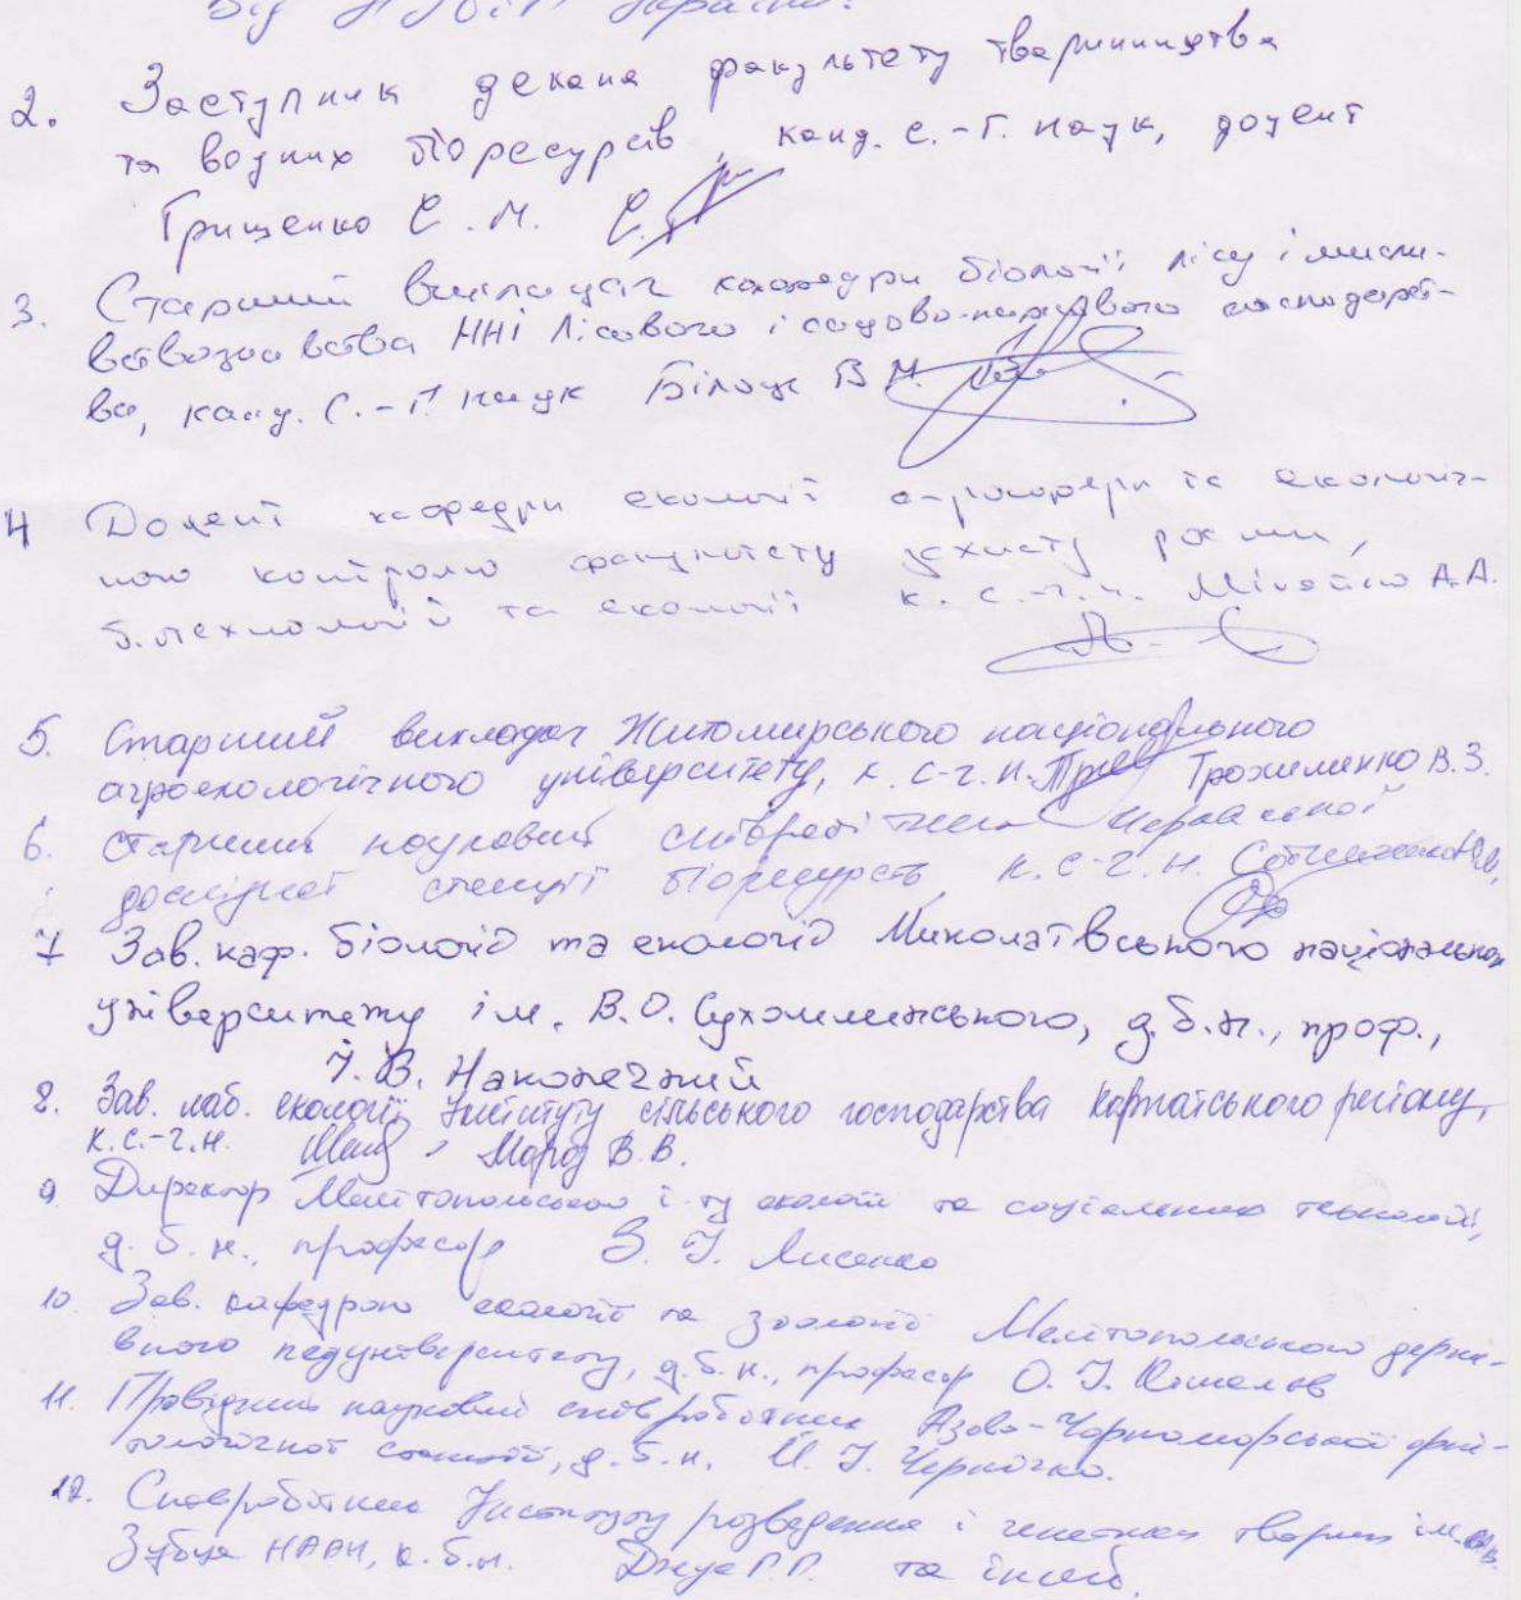 Від НУБіП України:
2. Заступник декана факультету тваринництва
та водних біоресурсів, канд. с.-г. наук, доцент
Грищенко С. М.
3. Старший викладач кафедри біології лісу і мисли-
вствознавства ННІ лісового і садово-паркового господарст-
ва, канд. с.-г. наук Білоус В М.
4 Доцент кафедри екології агросфери та екологіч-
ного контролю факультету захисту рослин,
біотехнологій та екології к. с.-г.н. А.А.
5. Старший викладач Житомирського національного
агроекологічного університету, к. с-г. н. Трохименко В.З.
6. Старший науковий співробітник Черкаської
дослідної станції біоресурсів, к. с-г. н.
7 Зав. каф. біології та екології Миколаївського національного
університету ім. В.О. Сухомлинського, д.б.н., проф.,
І. В. Наконечний
8. Зав. лаб. екології Інституту сільського господарства Карпатського регіону,
к.с.-г.н. Мороз В.В.
9 Директор Мелітопольського і-ту екології та соціальних технологій,
д. б. н., професор В. І. Лисенко
10. Зав. кафедрою екології та зоології Мелітопольського держа-
вного педуніверситету, д.б.н., професор О. І. Кошелєв
11. Провідний науковий співробітник Азово-Чорноморської орні-
тологічної станції, д.б.н. Й. І. Черничко.
12. Співробітник Інституту розведення і генетики тварин ім.
Зубця НААН, к.б.н. Джус П.П. та інші.